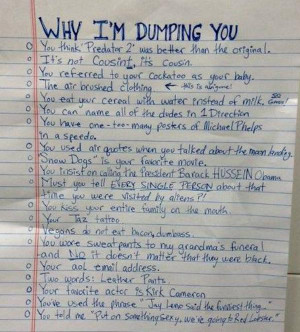 WHY I'M DUMPING YOU
You think 'Predator 2' was better than the original.
It's not Cousint, it's cousin.
You referred to your cockatoo as your baby.
The air brushed clothing ← this is a biggie!
You eat your cereal with water instead of milk.
You can name all of the dudes in 1 Direction
You have one-too-many posters of Michael Phelps
in a speedo.
You used air quotes when you talked about the moon landing.
"Snow Dogs" is your favorite movie.
You insist on calling the President Barack HUSSEIN Obama
Must you tell EVERY SINGLE PERSON about that
time you were visited by aliens?!
You kiss your entire family on the mouth
Your Taz tattoo
Vegans do not eat bacon, dumbass.
You wore sweatpants to my grandma's funeral
and NO it doesn't matter that they were black.
Your aol email address.
Two words: Leather Pants
Your favorite actor is Kirk Cameron
You've used the phrase "Jay Leno said the funniest thing..."
You told me "Put on something sexy, we're going to Red Lobster."